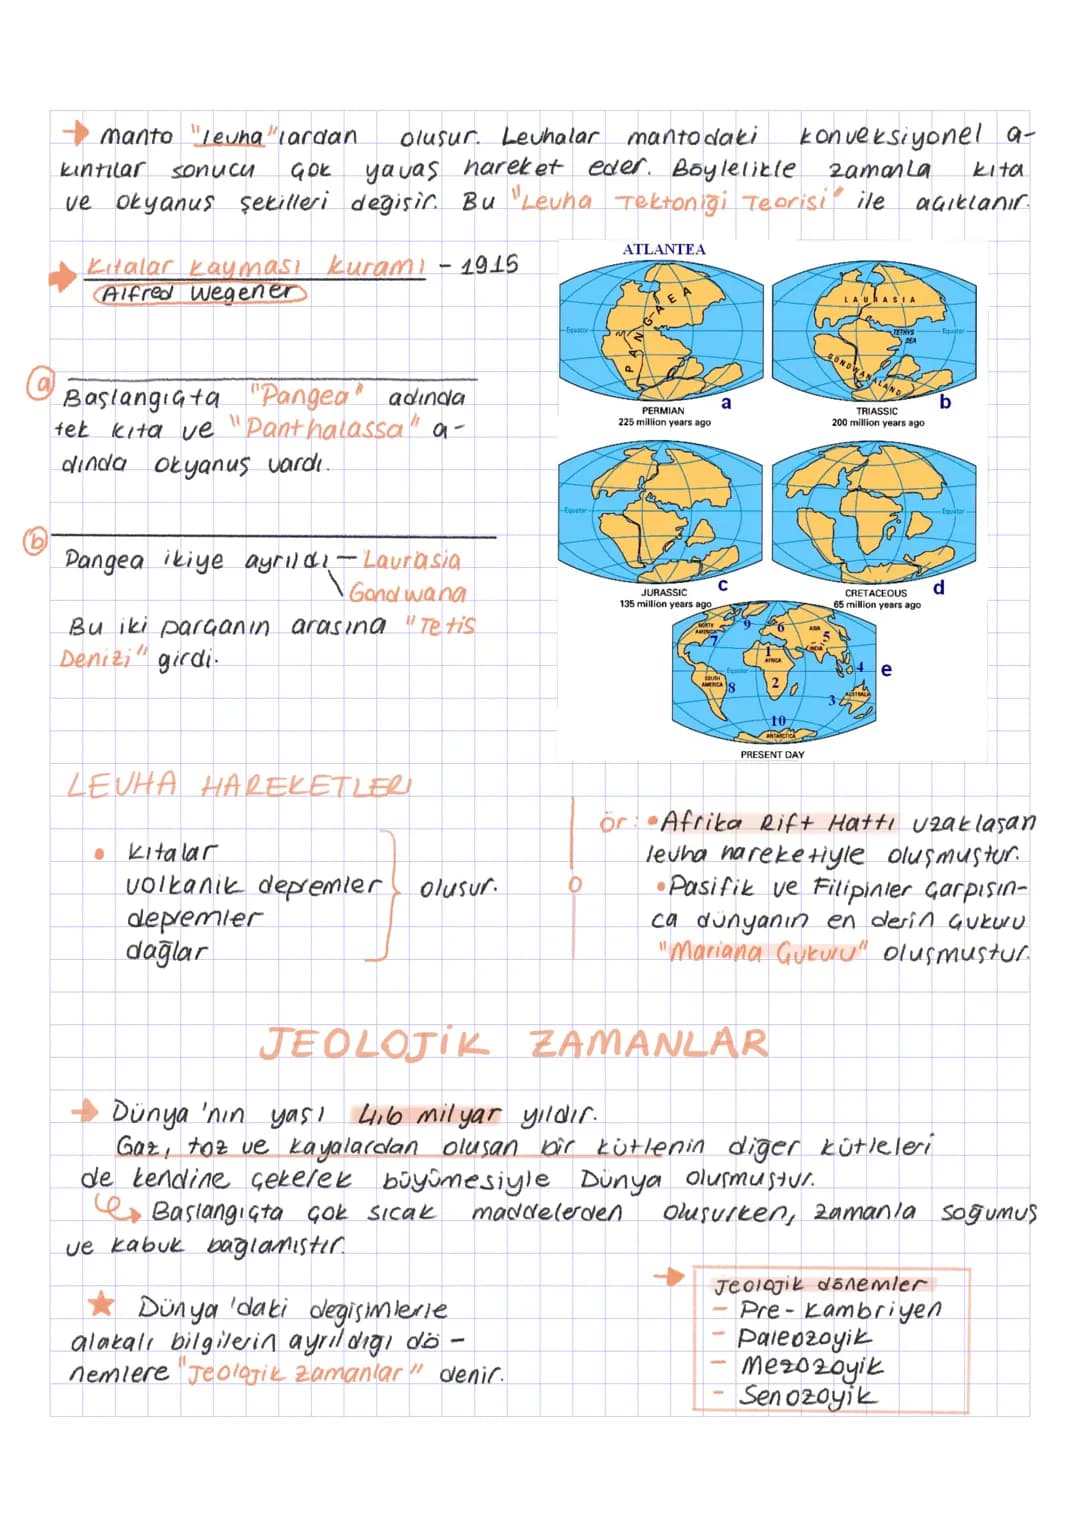 → manto "levha"lardan oluşur. Levhalar mantodaki konveksiyonel a-
kıntılar sonucu çok yavaş hareket eder. Böylelikle zamanla kıta
ve okyanus şekilleri değişir. Bu "Levha Tektoniği Teorisi" ile açıklanır.
→ Kıtalar Kayması Kuramı - 1915
Alfred Wegener
a
Başlangıçta "Pangea" adında
tek kıta ve "Panthalassa" a-
dında okyanus vardı.
b
Pangea ikiye ayrıldı - Laurasia
\ Gondwana
Bu iki parçanın arasına "Tetis
Denizi" girdi.
ATLANTEA
Equator
PANGAEA
PERMIAN
225 million years ago
a
LAURASIA
TETHYS
SEA
Equator
GONDWANALAND
TRIASSIC
200 million years ago
b
Equator
JURASSIC
135 million years ago
c
Equator
CRETACEOUS
65 million years ago
d
NORTH
AMERICA
7
9
6
ASIA
5
INDIA
1
AFRICA
Equator
4
e
SOUTH
AMERICA
8
2
3
AUSTRALIA
10
ANTARCTICA
PRESENT DAY
LEVHA HAREKETLERİ
• Kıtalar
volkanik depremler
depremler
dağlar
oluşur.
ör: • Afrika Rift Hattı uzaklaşan
levha hareketiyle oluşmuştur.
• Pasifik ve Filipinler çarpışın-
ca dünyanın en derin çukuru
"Mariana Çukuru" oluşmuştur.
JEOLOJİK ZAMANLAR
→ Dünya'nın yaşı 4,6 milyar yıldır.
Gaz, toz ve kayalardan oluşan bir kütlenin diğer kütleleri
de kendine çekerek büyümesiyle Dünya oluşmuştur.
Başlangıçta çok sıcak maddelerden oluşurken, zamanla soğumuş
ve kabuk bağlamıştır.
★ Dünya'daki değişimlerle
alakalı bilgilerin ayrıldığı dö-
nemlere "Jeolojik zamanlar" denir.
→ Jeolojik dönemler
- Pre-Kambriyen
- Paleozoyik
- Mezozoyik
- Senozoyik